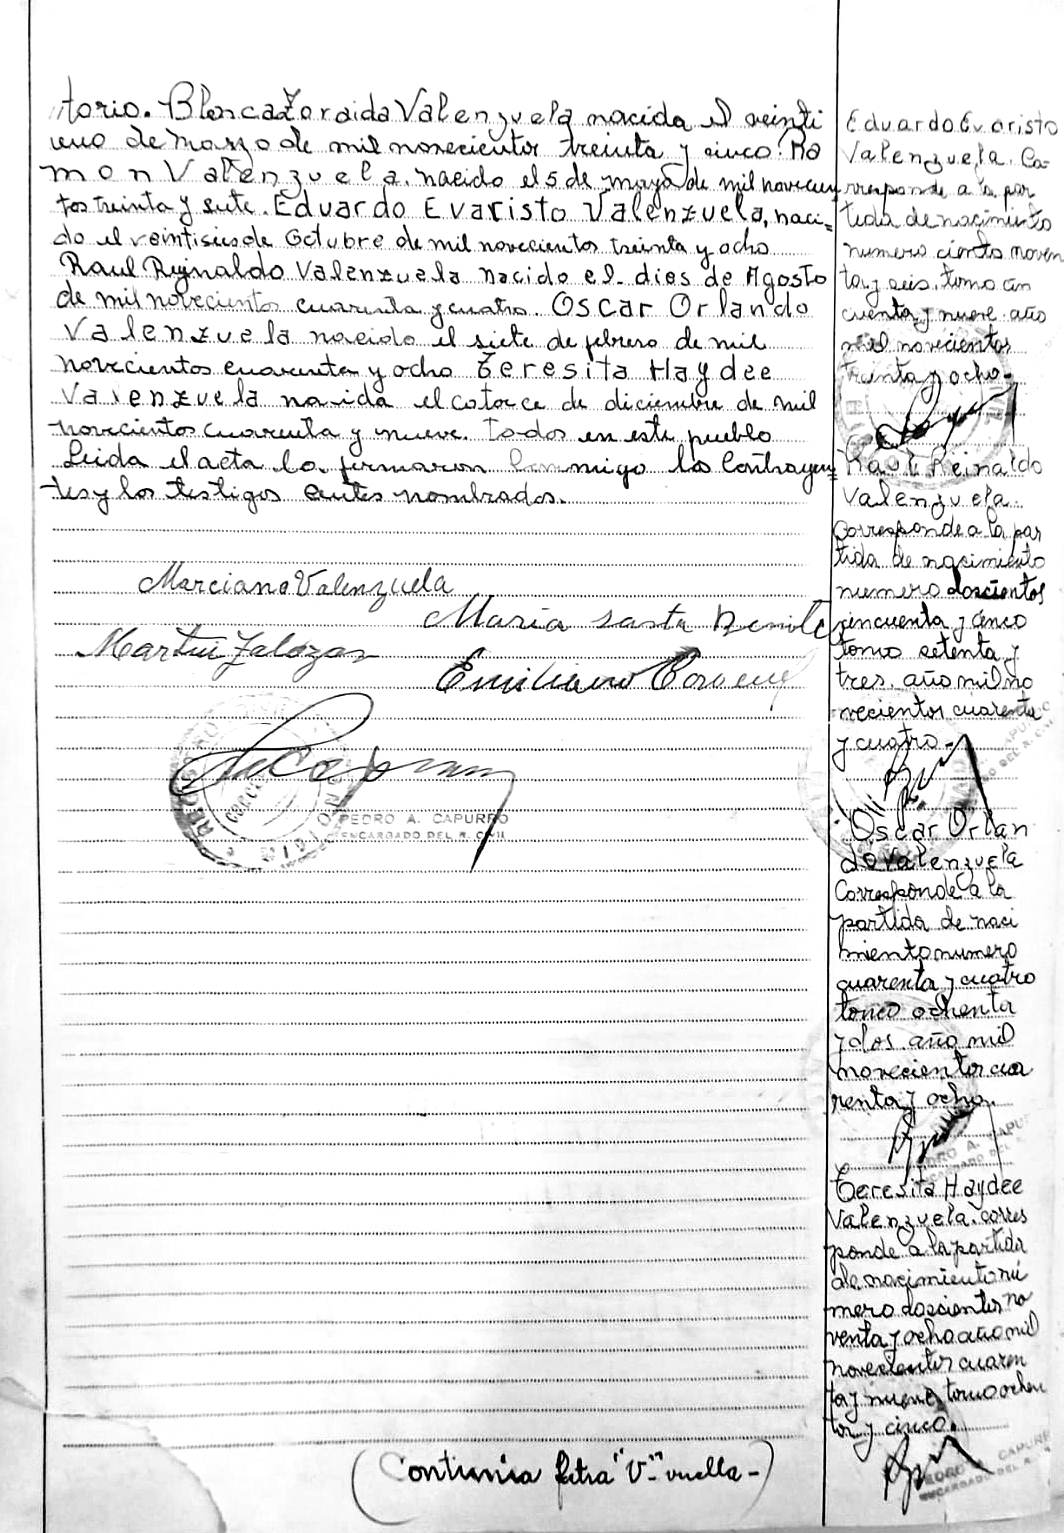 torio. Blanca Zoraida Valenzuela nacida el veinti
uno de marzo de mil novecientos treinta y cinco. Ra
mon Valenzuela. nacido el 5 de mayo de mil novecien
tos treinta y siete. Eduardo Evaristo Valenzuela, naci=
do el veintiseis de Octubre de mil novecientos treinta y ocho
Raul Reynaldo Valenzuela nacido el dies de Agosto
de mil novecientos cuarenta y cuatro. Oscar Orlando
Valenzuela nacido el siete de febrero de mil
novecientos cuarenta y ocho Teresita Haydee
Valenzuela nacida el catorce de diciembre de mil
novecientos cuarenta y nueve. todos en este pueblo
Leida el acta la firmaron conmigo los Contrayen=
tes y los testigos antes nombrados.
Marciano Valenzuela
Maria santa Benite
Martin Zalazar
Emiliano
REGISTRO CIVIL
PEDRO A. CAPURRO
ENCARGADO DEL R. CIVIL
(Continúa letra "V" vuelta-)
Eduardo Evaristo
Valenzuela. Co-
rresponde a la par
tida de nacimiento
numero ciento noven
ta y seis. tomo cin
cuenta y nueve. año
mil novecientos
treinta y ocho-
Raul Reinaldo
Valenzuela.
Corresponde a la par
tida de nacimiento
numero doscientos
cincuenta y cinco
tomo setenta y
tres. año mil no
vecientos cuarenta
y cuatro-
Oscar Orlan
do Valenzuela
Corresponde a la
partida de naci
miento numero
cuarenta y cuatro
tomo ochenta
y dos. año mil
novecientos cua
renta y ocho.
PEDRO A. CAPUR
ENCARGADO DEL
Teresita Haydee
Valenzuela. corres
ponde a la partida
de nacimiento nú
mero doscientos no
venta y ocho año mil
novecientos cuaren
ta y nueve tomo ochen
ta y cinco.
PEDRO A. CAPURR
ENCARGADO DEL R.